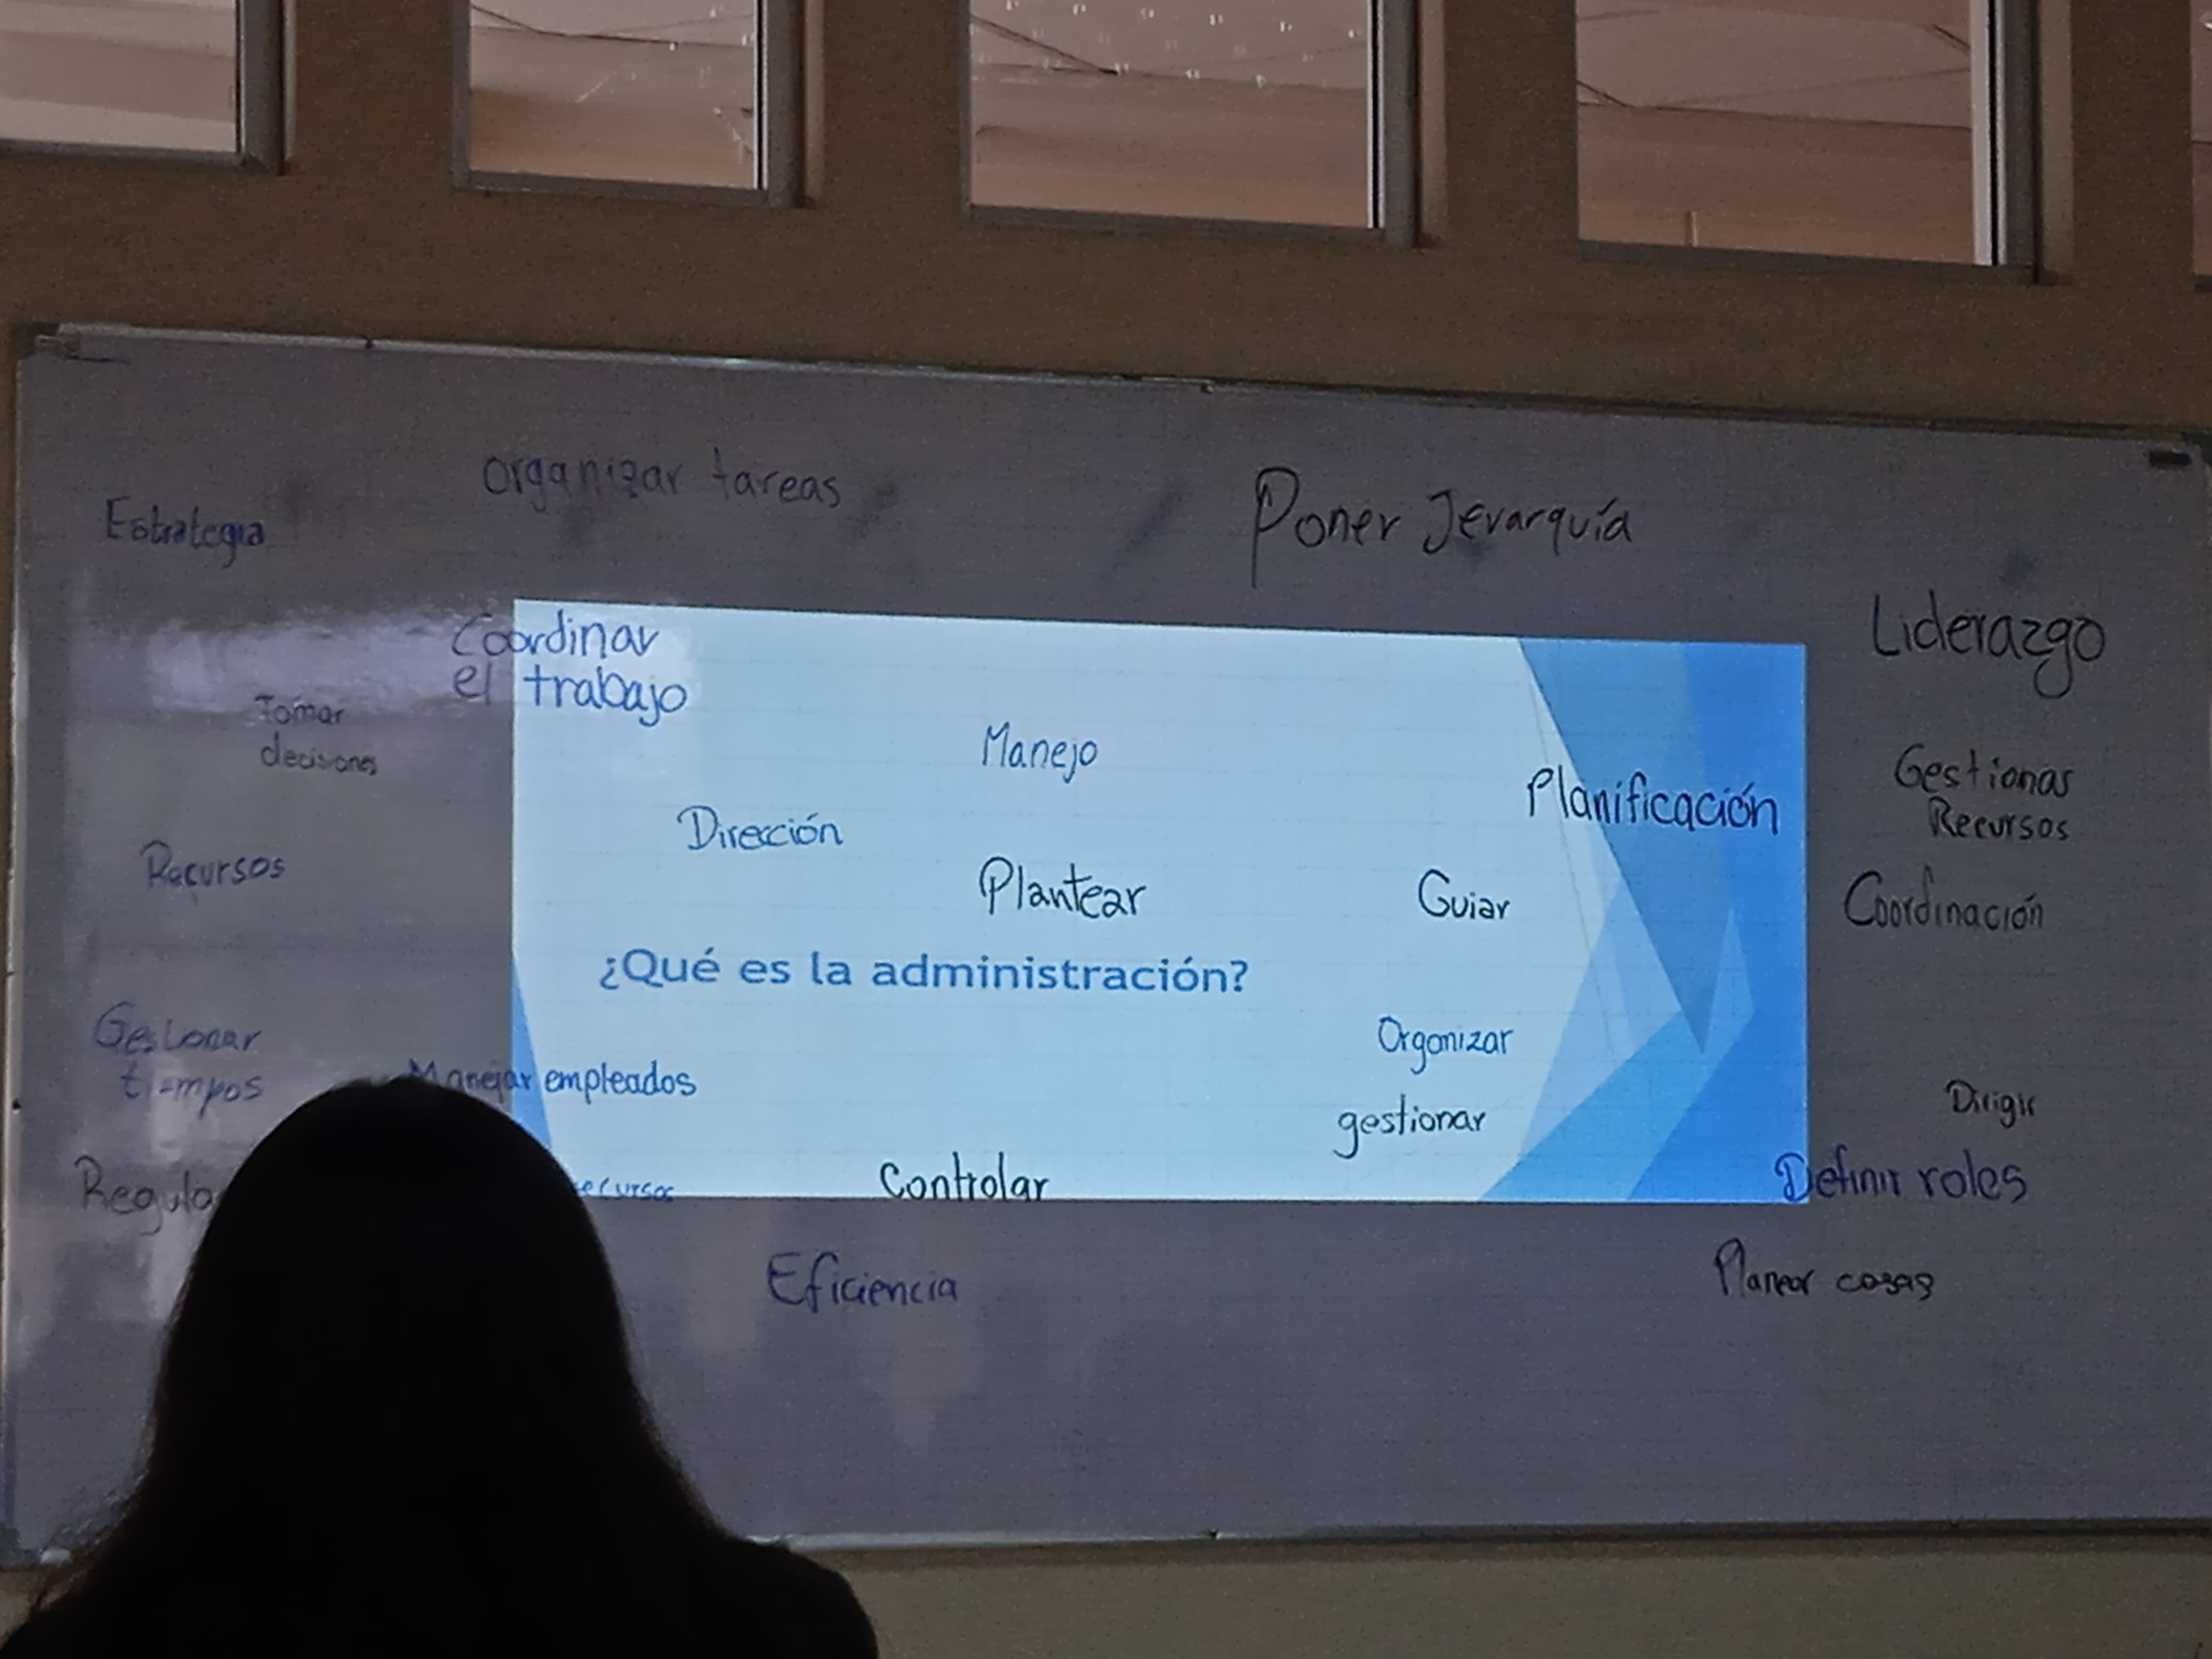 organizar tareas
Estrategia
Poner Jerarquía
Liderazgo
Coordinar
el trabajo
Tomar
decisiones
Manejo
Planificación
Gestionar
Recursos
Dirección
Recursos
Plantear
Guiar
Coordinación
¿Qué es la administración?
Gestionar
tiempos
Organizar
Manejar empleados
gestionar
Dirigir
Controlar
Definir roles
Eficiencia
Planear cosas